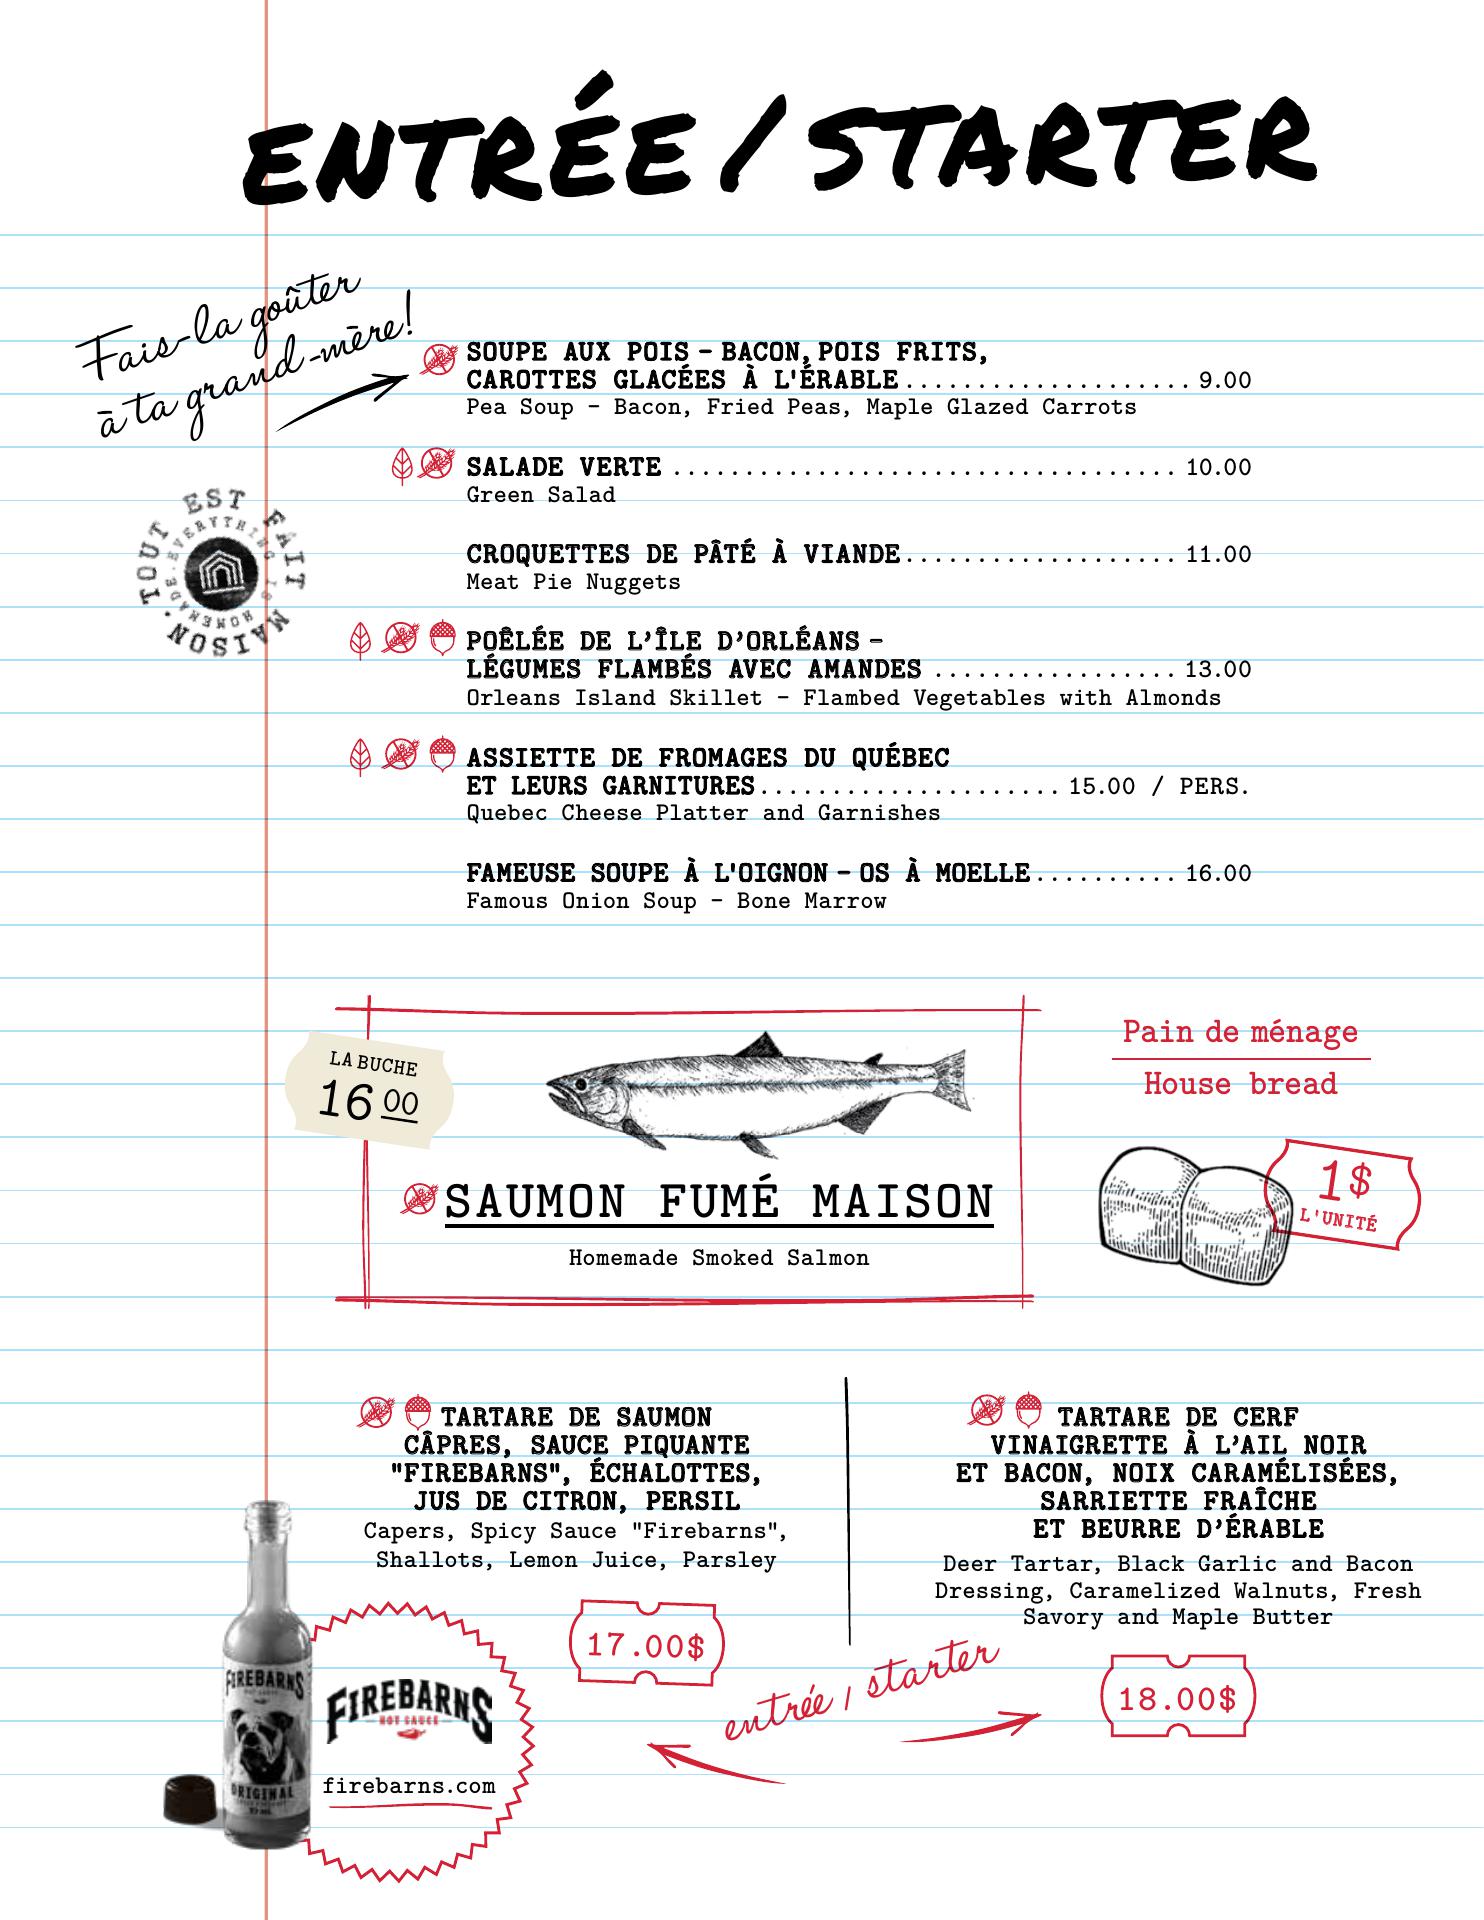 ENTRÉE / STARTER
Fais-la goûter
à ta grand-mère!
SOUPE AUX POIS – BACON, POIS FRITS,
CAROTTES GLACÉES À L'ÉRABLE.................... 9.00
Pea Soup – Bacon, Fried Peas, Maple Glazed Carrots
SALADE VERTE ................................... 10.00
Green Salad
TOUT EST FAIT MAISON.
EVERYTHING IS HOMEMADE.
CROQUETTES DE PÂTÉ À VIANDE................... 11.00
Meat Pie Nuggets
POÊLÉE DE L’ÎLE D’ORLÉANS –
LÉGUMES FLAMBÉS AVEC AMANDES ................. 13.00
Orleans Island Skillet – Flambed Vegetables with Almonds
ASSIETTE DE FROMAGES DU QUÉBEC
ET LEURS GARNITURES..................... 15.00 / PERS.
Quebec Cheese Platter and Garnishes
FAMEUSE SOUPE À L'OIGNON – OS À MOELLE.......... 16.00
Famous Onion Soup – Bone Marrow
LA BUCHE
16 00
SAUMON FUMÉ MAISON
Homemade Smoked Salmon
Pain de ménage
House bread
1$
L'UNITÉ
TARTARE DE SAUMON
CÂPRES, SAUCE PIQUANTE
"FIREBARNS", ÉCHALOTTES,
JUS DE CITRON, PERSIL
Capers, Spicy Sauce "Firebarns",
Shallots, Lemon Juice, Parsley
17.00$
TARTARE DE CERF
VINAIGRETTE À L’AIL NOIR
ET BACON, NOIX CARAMÉLISÉES,
SARRIETTE FRAÎCHE
ET BEURRE D’ÉRABLE
Deer Tartar, Black Garlic and Bacon
Dressing, Caramelized Walnuts, Fresh
Savory and Maple Butter
18.00$
entrée / starter
FIREBARNS
HOT SAUCE
ORIGINAL
FIREBARNS
HOT SAUCE
firebarns.com